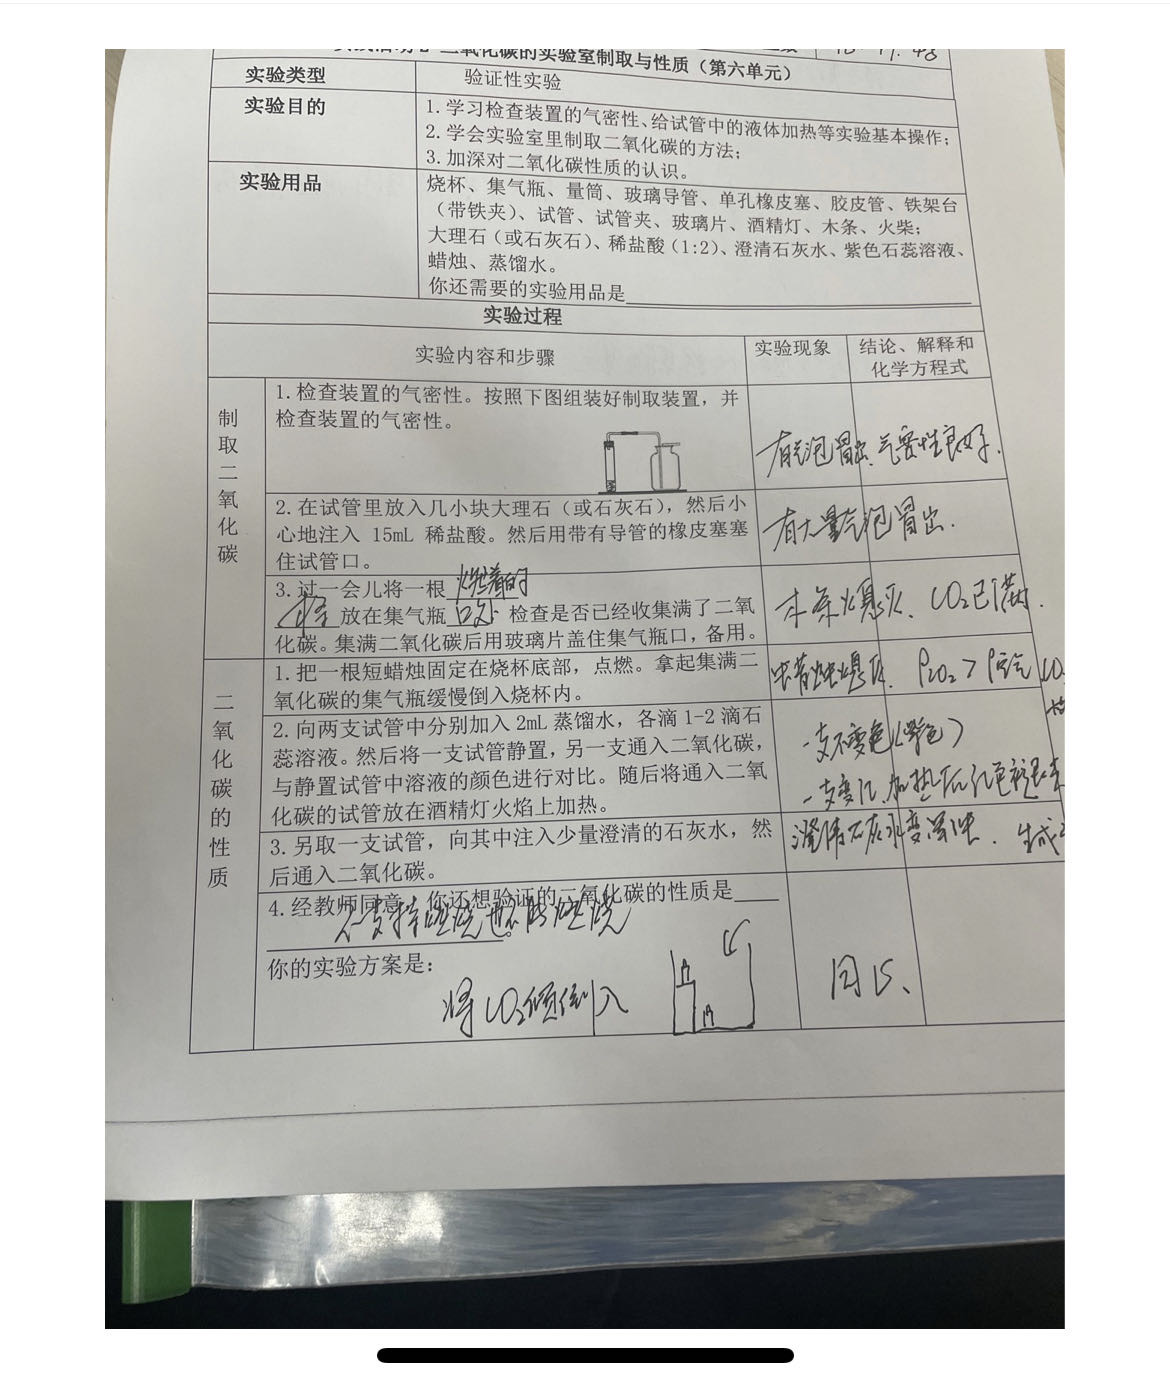 二氧化碳的实验室制取与性质（第六单元）
实验类型
验证性实验
实验目的
1.学习检查装置的气密性、给试管中的液体加热等实验基本操作；
2.学会实验室里制取二氧化碳的方法；
3.加深对二氧化碳性质的认识。
实验用品
烧杯、集气瓶、量筒、玻璃导管、单孔橡皮塞、胶皮管、铁架台
（带铁夹）、试管、试管夹、玻璃片、酒精灯、木条、火柴；
大理石（或石灰石）、稀盐酸（1:2）、澄清石灰水、紫色石蕊溶液、
蜡烛、蒸馏水。
你还需要的实验用品是
实验过程
实验内容和步骤
实验现象
结论、解释和
化学方程式
制取二氧化碳
1.检查装置的气密性。按照下图组装好制取装置，并
检查装置的气密性。
有气泡冒出、气密性良好.
2.在试管里放入几小块大理石（或石灰石），然后小
心地注入 15mL 稀盐酸。然后用带有导管的橡皮塞塞
住试管口。
有大量气泡冒出.
3.过一会儿将一根 燃着的
放在集气瓶 口处 检查是否已经收集满了二氧
化碳。集满二氧化碳后用玻璃片盖住集气瓶口，备用。
木条熄灭、CO₂已满.
二氧化碳的性质
1.把一根短蜡烛固定在烧杯底部，点燃。拿起集满二
氧化碳的集气瓶缓慢倒入烧杯内。
蜡烛熄灭. ρCO₂ > ρ空气
2.向两支试管中分别加入 2mL 蒸馏水，各滴 1-2 滴石
蕊溶液。然后将一支试管静置，另一支通入二氧化碳，
与静置试管中溶液的颜色进行对比。随后将通入二氧
化碳的试管放在酒精灯火焰上加热。
一支不变色(紫色)
一支变红、加热后红色褪去
3.另取一支试管，向其中注入少量澄清的石灰水，然
后通入二氧化碳。
澄清石灰水变浑浊. 生成
4.经教师同意，你还想验证的二氧化碳的性质是
不支持燃烧也不能燃烧
你的实验方案是：
将CO₂倾倒入
同上、